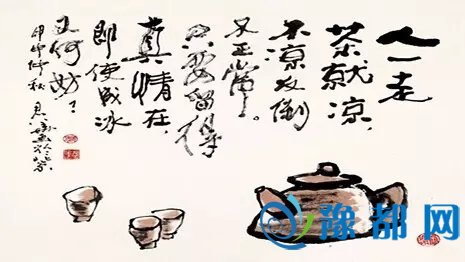 人一走
茶就凉,
不凉反倒
不正常。
只要留得
真情在,
即使成冰
又何妨!
甲申仲秋
豫都网